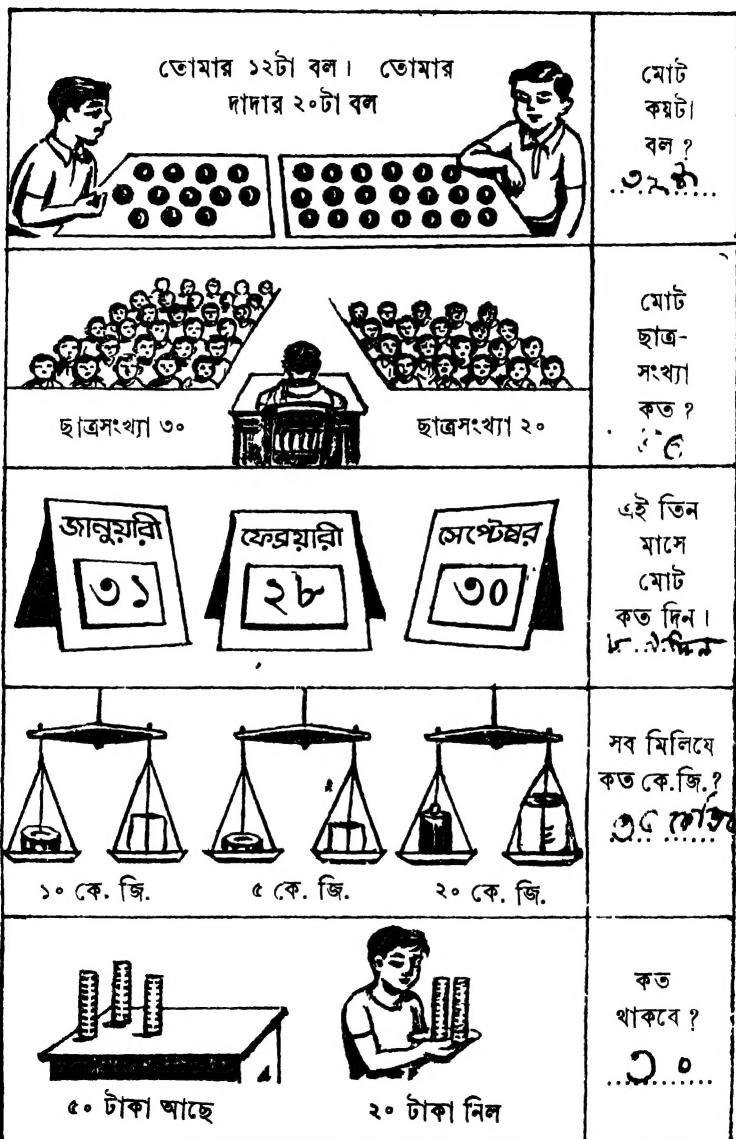 তোমার ১২টা বল। তোমার
দাদার ২০টা বল
মোট
কয়টা
বল ?
৩২টা
ছাত্রসংখ্যা ৩০
ছাত্রসংখ্যা ২০
মোট
ছাত্র-
সংখ্যা
কত ?
জানুয়ারী
৩১
ফেব্রুয়ারী
২৮
সেপ্টেম্বর
৩০
এই তিন
মাসে
মোট
কত দিন।
৮৯দিন
১০ কে. জি.
৫ কে. জি.
২০ কে. জি.
সব মিলিযে
কত কে.জি.?
৩৫ কেজি
৫০ টাকা আছে
২০ টাকা নিল
কত
থাকবে ?
৩০